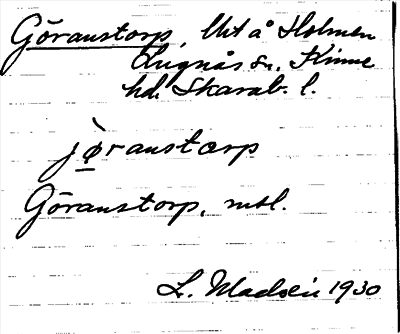 Göranstorp, Utt å Holmen
Lugnås sn, Kinne
hd. Skarab. l.
jø̀ranstɔrp
Göranstorp, mtl.
L. Madsén 1930